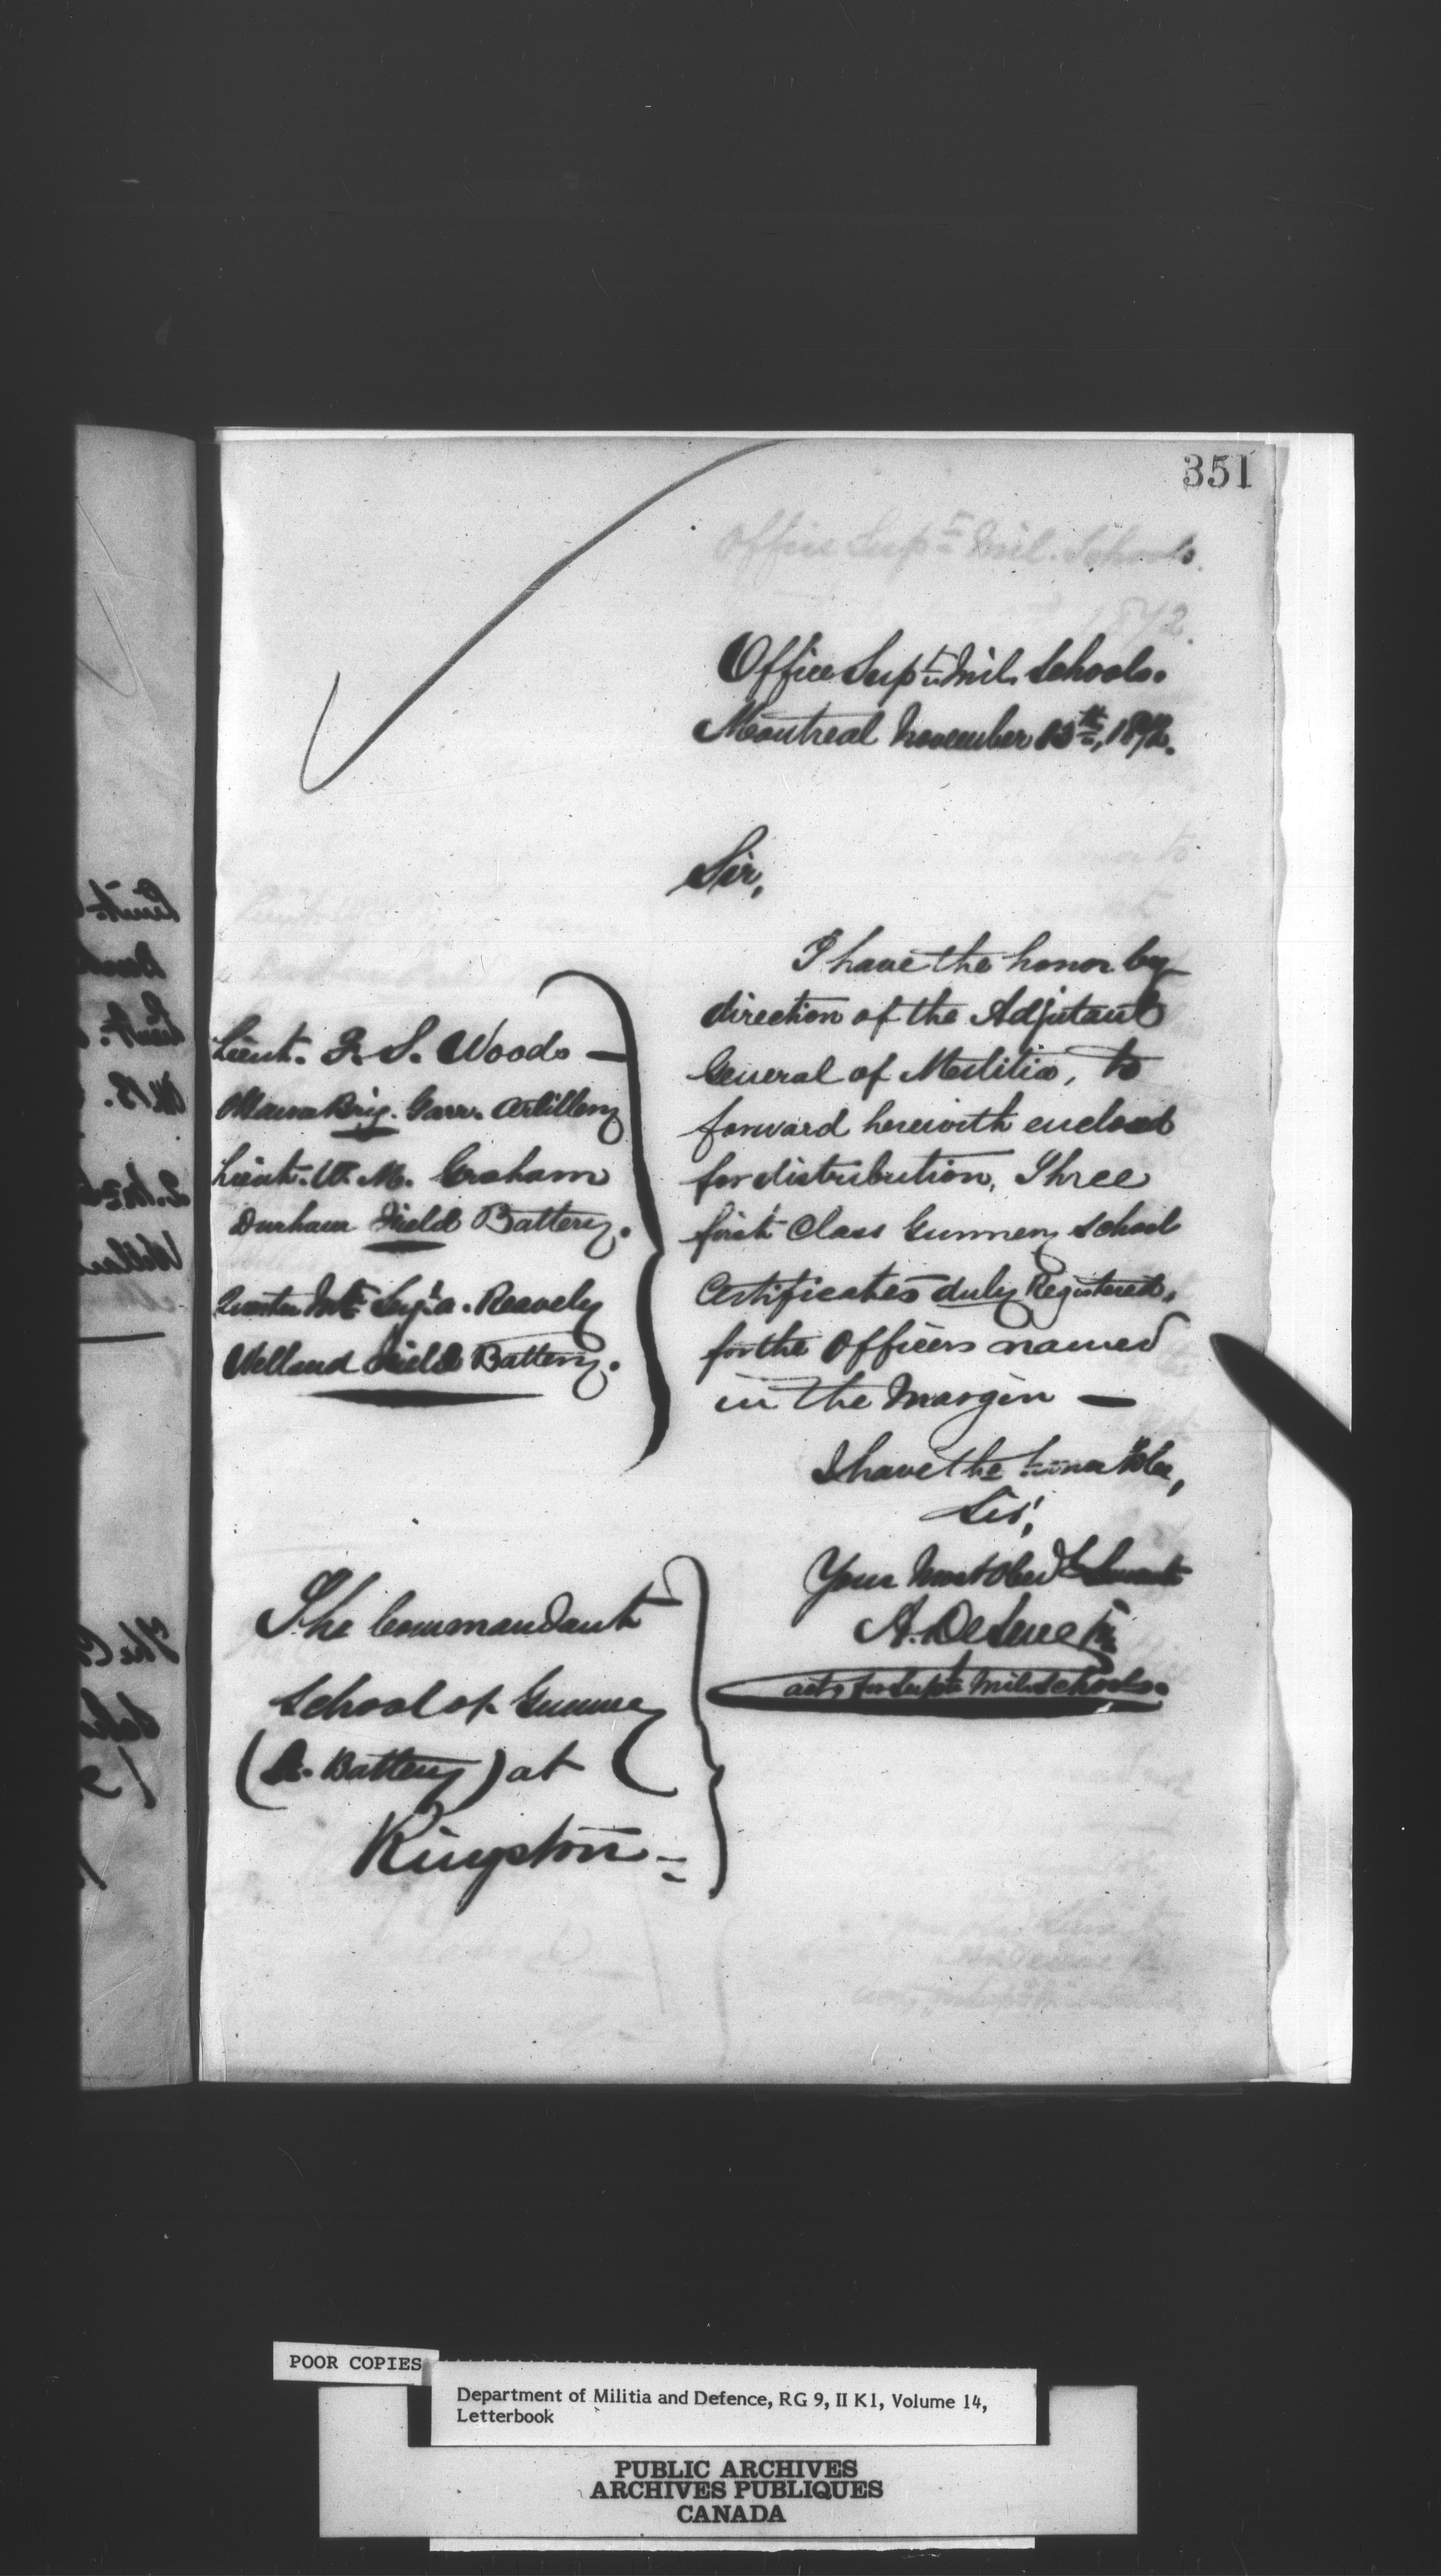 351
Office Supt. Mil. Schools.
Montreal November 15th, 1872.
Sir,
I have the honor by
direction of the Adjutant
General of Militia, to
forward herewith enclosed
for distribution, Three
first Class Gunnery School
Certificates duly Registered,
for the Officers named
in the Margin —
Lieut. F. S. Woods —
Ottawa Brig. Garr. Artillery
Lieut. W. M. Graham
Durham Field Battery.
Quarter Mr. Sergt. a. Reavely
Welland Field Battery.
I have the honor to be,
Sir,
Your Most Obedt Servant
A.
actg for Supt Mil. Schools.
The Commandant
School of Gunnery
(A. Battery) at
Kingston =
POOR COPIES
Department of Militia and Defence, RG 9, II K1, Volume 14,
Letterbook
PUBLIC ARCHIVES
ARCHIVES PUBLIQUES
CANADA